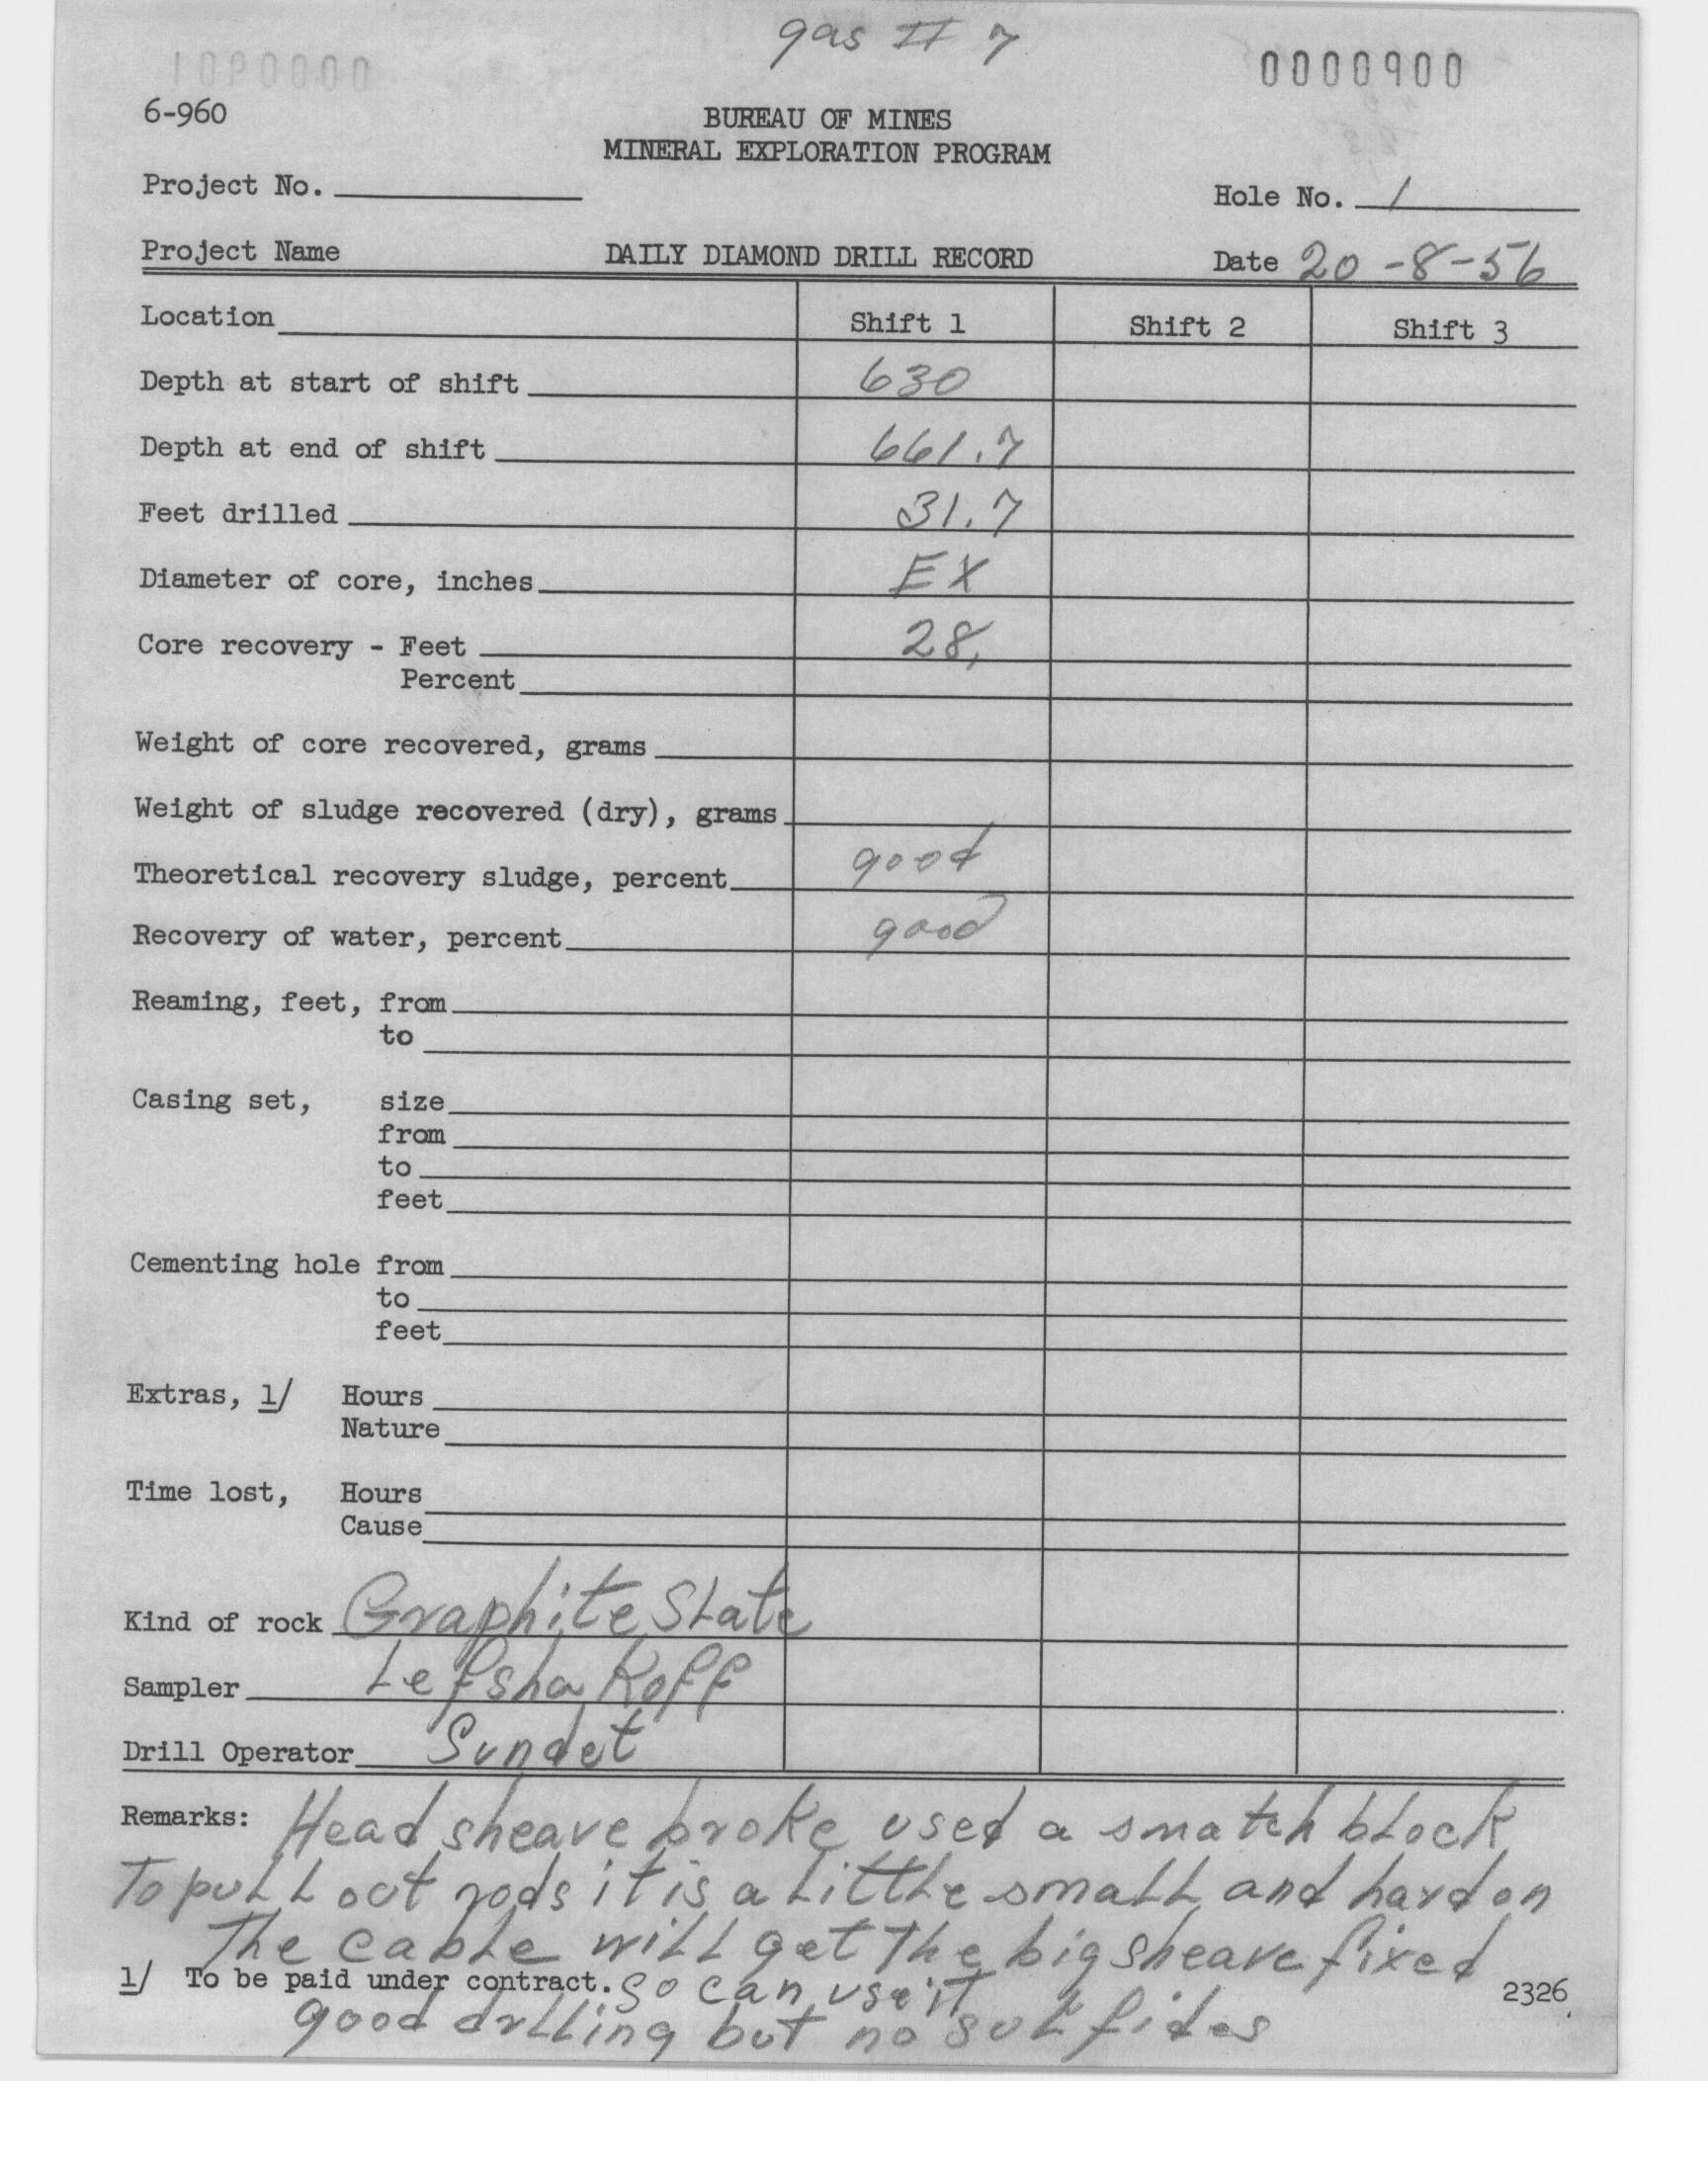 gas II 7
0000900
6-960
BUREAU OF MINES
MINERAL EXPLORATION PROGRAM
Project No.
Hole No. 1
Project Name DAILY DIAMOND DRILL RECORD Date 20-8-56
Location Shift 1 Shift 2 Shift 3
Depth at start of shift 630
Depth at end of shift 661.7
Feet drilled 31.7
Diameter of core, inches EX
Core recovery - Feet 28.
Percent
Weight of core recovered, grams
Weight of sludge recovered (dry), grams
Theoretical recovery sludge, percent good
Recovery of water, percent good
Reaming, feet, from
to
Casing set, size
from
to
feet
Cementing hole from
to
feet
Extras, 1/ Hours
Nature
Time lost, Hours
Cause
Kind of rock Graphite Slate
Sampler Lefsha Koff
Drill Operator Sundet
Remarks: Head sheave broke used a snatch block
To pull out rods it is a little small and hard on
The cable will get The big sheave fixed
1/ To be paid under contract. so can use it 2326
good drlling but no sulfides